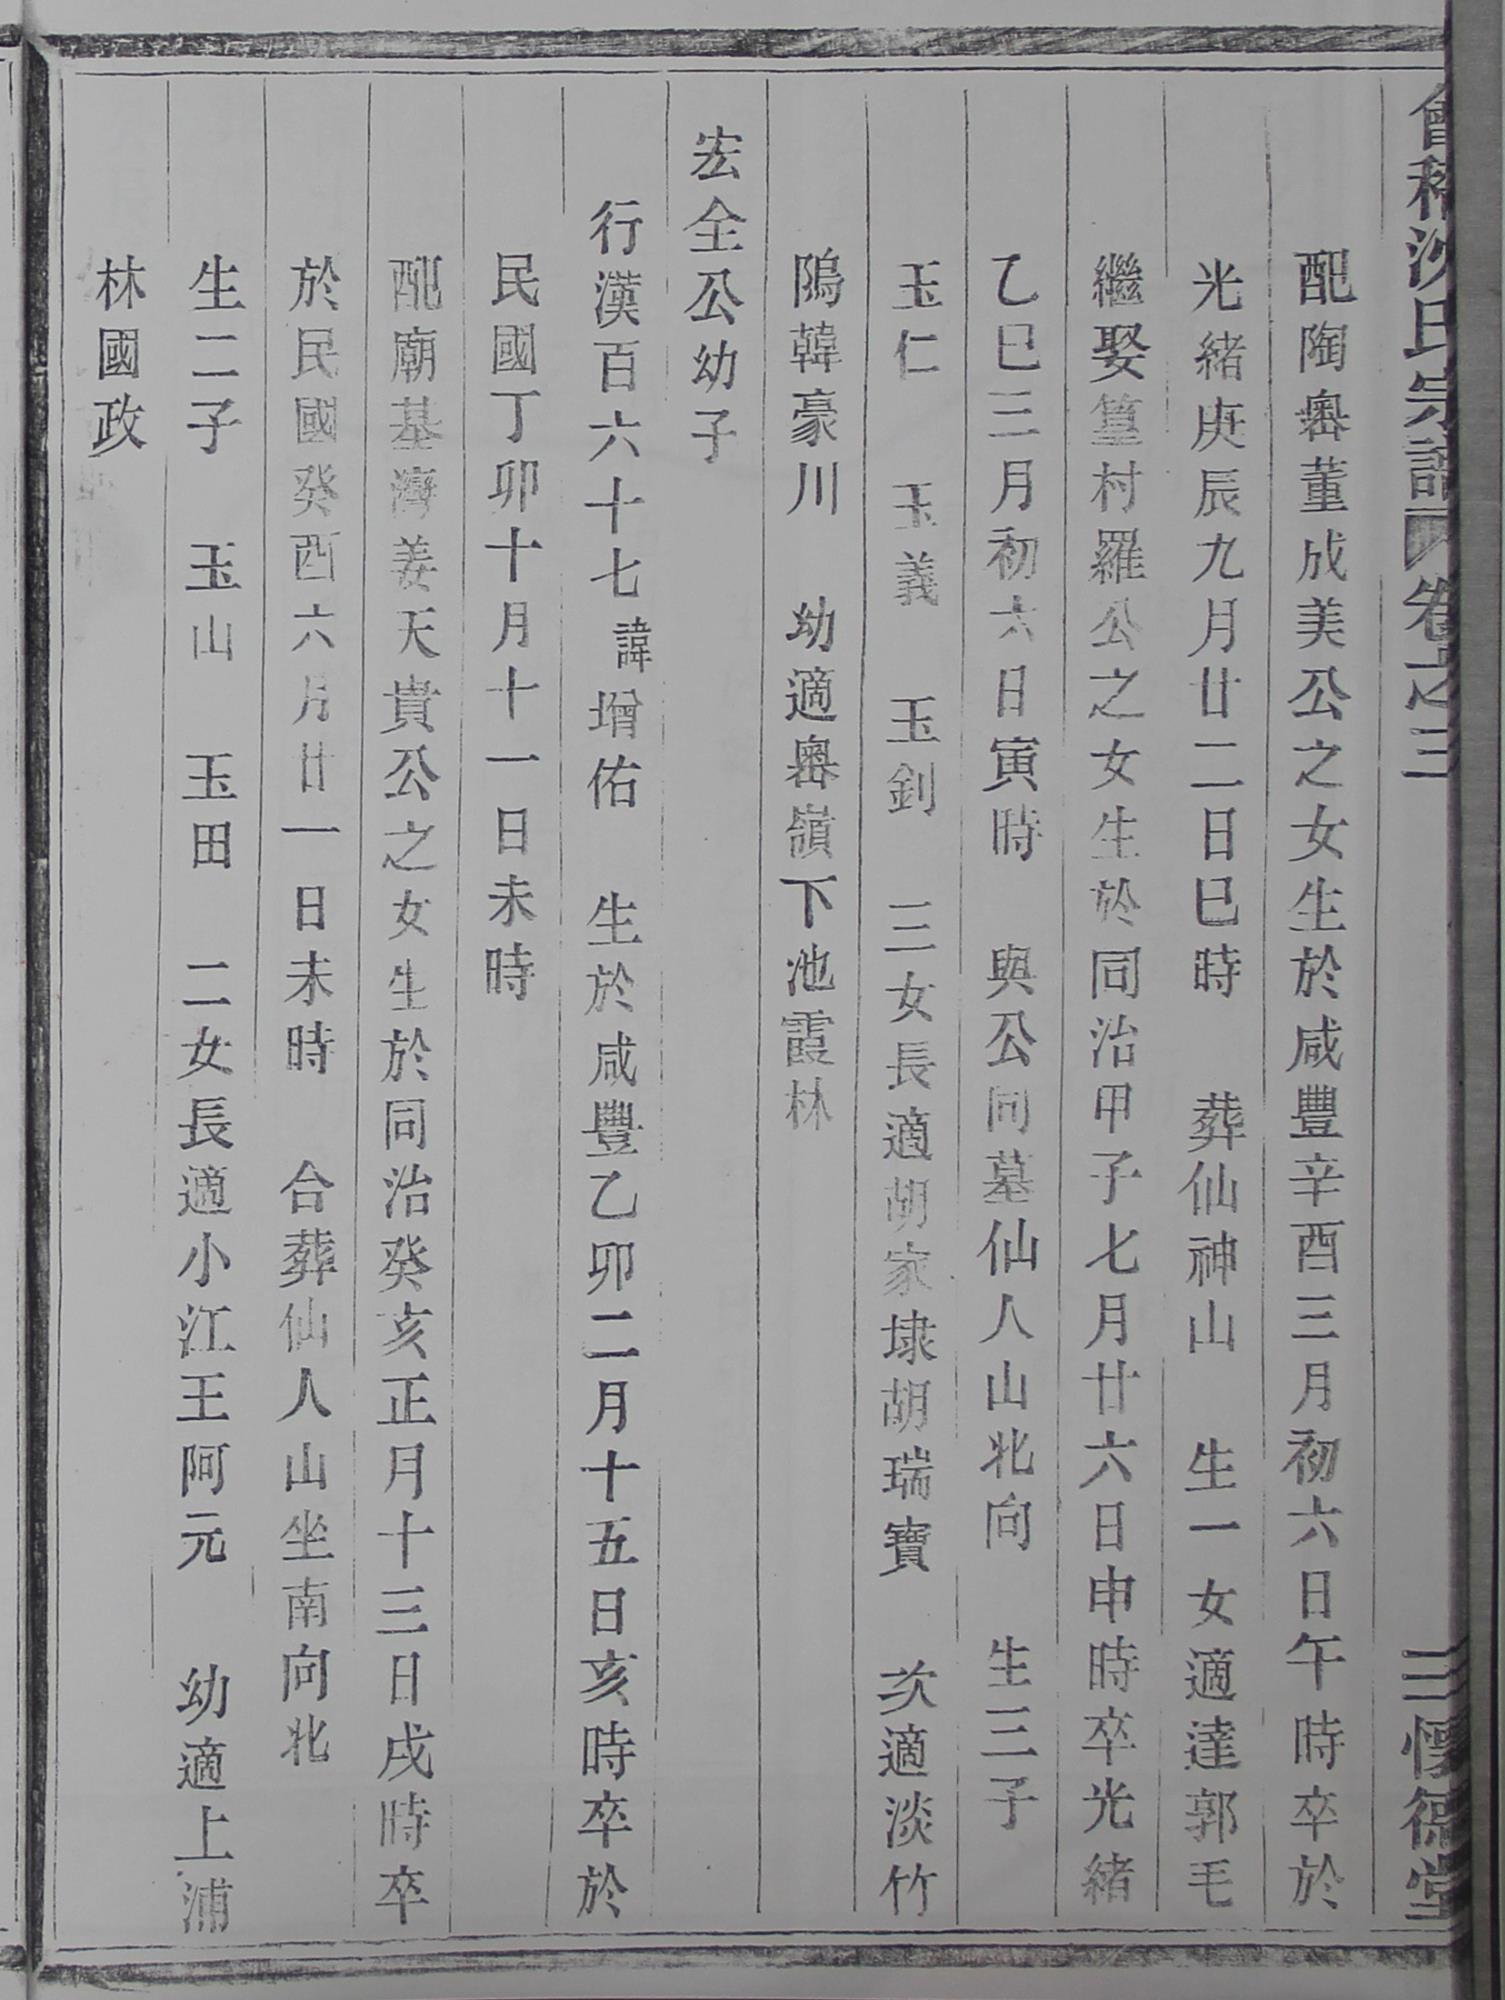 會稽沈氏宗譜 卷之三 三 懷德堂
配陶嶴董成美公之女生於咸豐辛酉三月初六日午時卒於
光緒庚辰九月廿二日巳時 葬仙神山 生一女適達郭毛
繼娶篁村羅公之女生於同治甲子七月廿六日申時卒光緒
乙巳三月初六日寅時 與公同墓仙人山北向 生三子
玉仁 玉義 玉釗 三女長適胡家埭胡瑞寶 次適淡竹
隖韓豪川 幼適嶴嶺下池霞林
宏全公幼子
行漢百六十七諱增佑 生於咸豐乙卯二月十五日亥時卒於
民國丁卯十月十一日未時
配廟基灣姜天貴公之女生於同治癸亥正月十三日戌時卒
於民國癸酉六月廿一日未時 合葬仙人山坐南向北
生二子 玉山 玉田 二女長適小江王阿元 幼適上浦
林國政